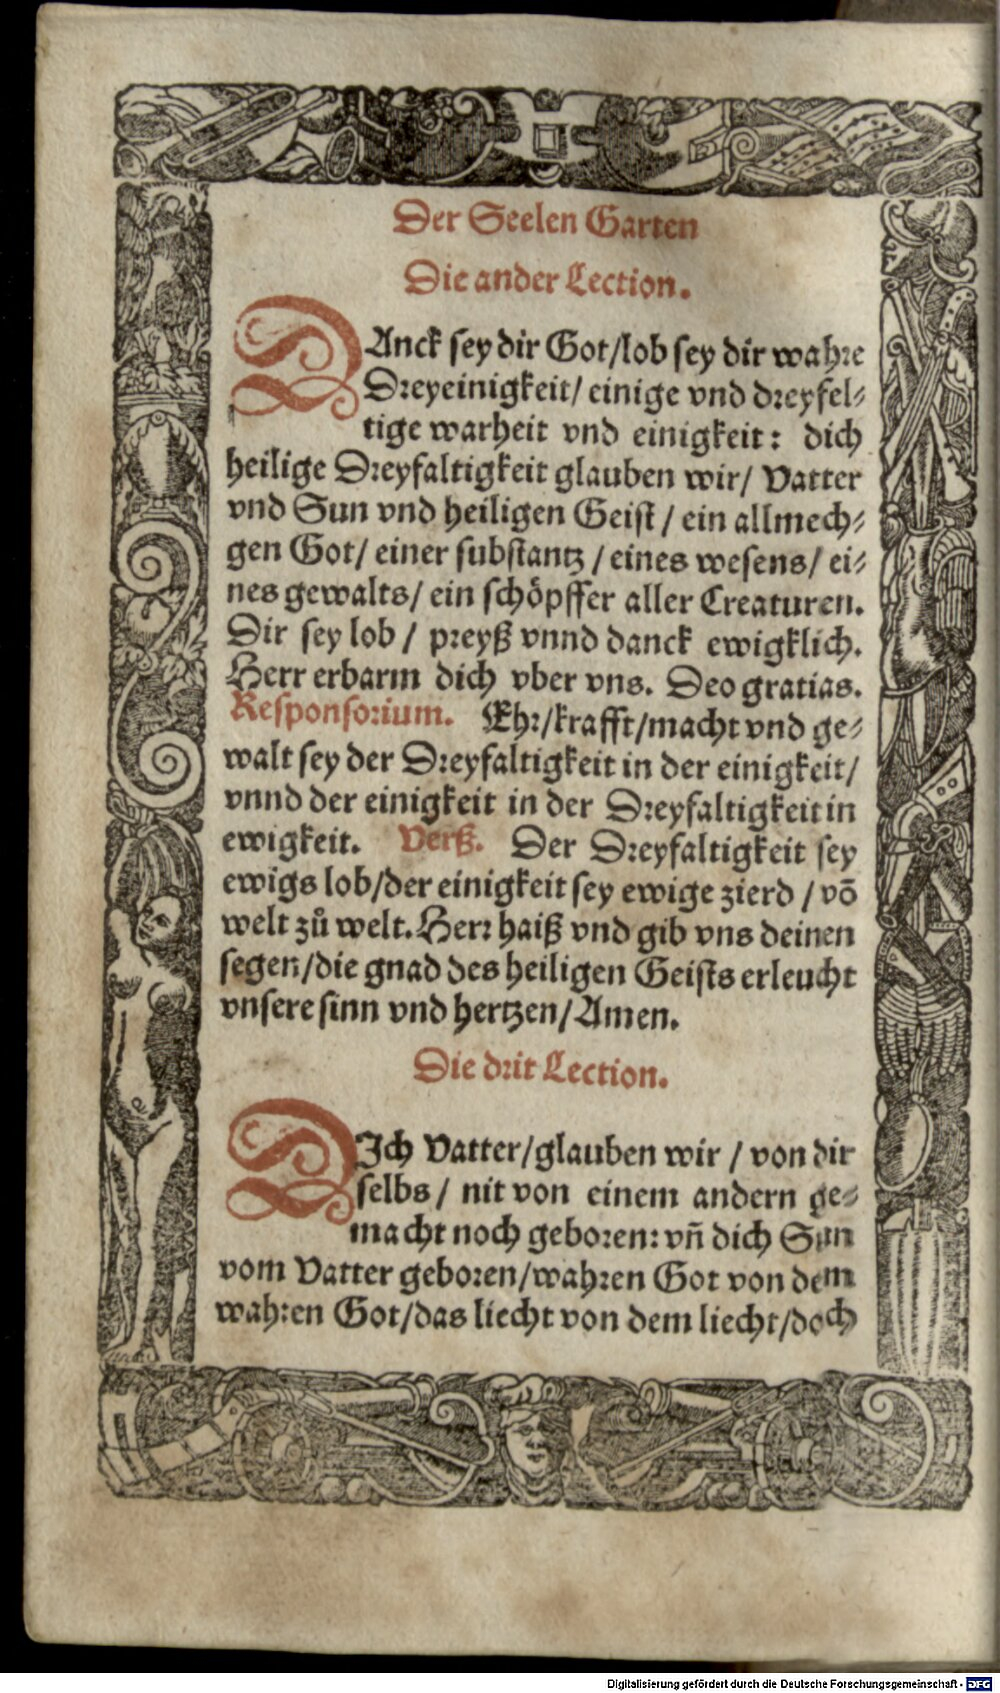 Der Seelen Garten
Die ander Lection.
DAnck sey dir Got/lob sey dir wahre
Dreyeinigkeit/ einige vnd dreyfel⸗
tige warheit vnd einigkeit: dich
heilige Dreyfaltigkeit glauben wir/ Vatter
vnd Sun vnd heiligen Geist / ein allmech⸗
gen Got/ einer substantz / eines wesens/ ei⸗
nes gewalts/ ein schöpffer aller Creaturen.
Dir sey lob / preyß vnnd danck ewigklich.
Herr erbarm dich vber vns. Deo gratias.
Responsorium. Ehr/krafft/macht vnd ge⸗
walt sey der Dreyfaltigkeit in der einigkeit/
vnnd der einigkeit in der Dreyfaltigkeit in
ewigkeit. Verß. Der Dreyfaltigkeit sey
ewigs lob/der einigkeit sey ewige zierd / vō
welt zů welt. Herr haiß vnd gib vns deinen
segen/die gnad des heiligen Geists erleucht
vnsere sinn vnd hertzen/Amen.
Die drit Lection.
DIch Vatter/glauben wir / von dir
selbs / nit von einem andern ge⸗
macht noch geboren: vñ dich Sun
vom Vatter geboren/wahren Got von dem
wahren Got/das liecht von dem liecht/doch
Digitalisierung gefördert durch die Deutsche Forschungsgemeinschaft - DFG